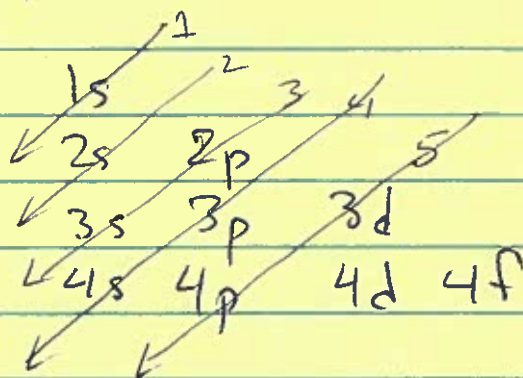 1
1s 2 3 4
2s 2p 5
3s 3p 3d
4s 4p 4d 4f